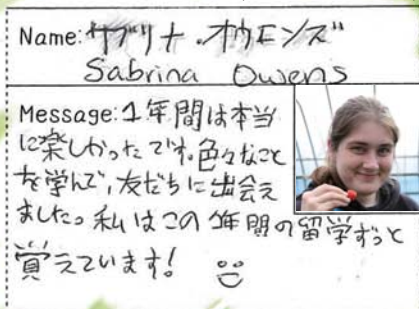 Name:サブリナ・オウエンズ
Sabrina Owens
Message:1年間は本当
に楽しかったです。色々なこと
を学んで、友だちに出会え
ました。私はこの1年間の留学ずっと
覚えています!